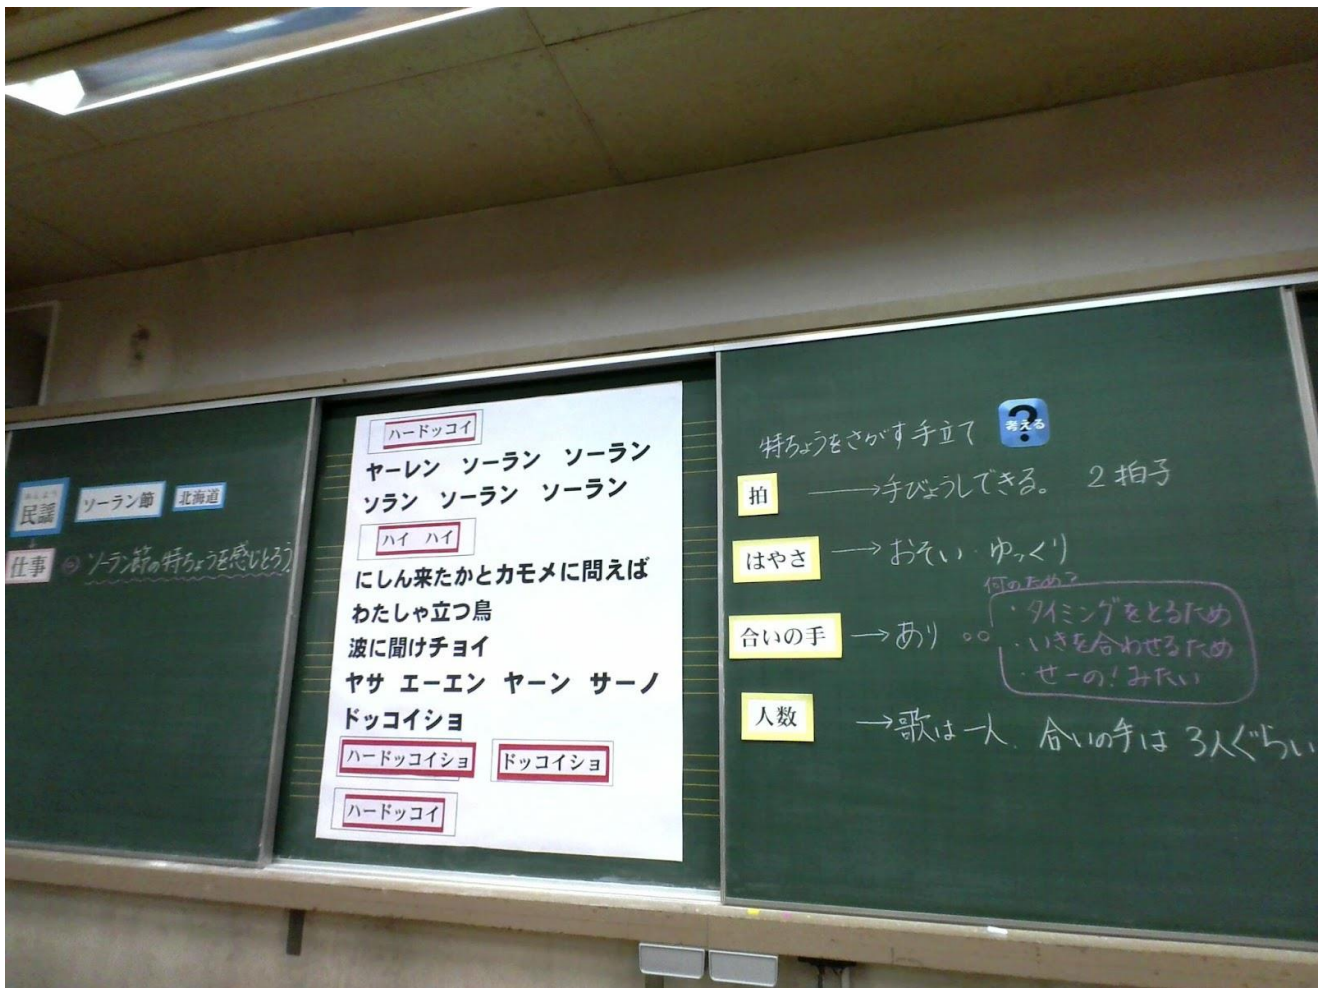 みんよう
民謡 ソーラン節 北海道
仕事 ソーラン節の特ちょうを感じとろう
ハードッコイ
ヤーレン ソーラン ソーラン
ソラン ソーラン ソーラン
ハイ ハイ
にしん来たかとカモメに問えば
わたしゃ立つ鳥
波に聞けチョイ
ヤサ エーエン ヤーン サーノ
ドッコイショ
ハードッコイショ ドッコイショ
ハードッコイ
特ちょうをさがす手立て ? 考える
拍 →手びょうしできる。 2拍子
はやさ →おそい・ゆっくり
何のため?
・タイミングをとるため
合いの手 →あり
・いきを合わせるため
・せーの!みたい
人数 →歌は一人、合いの手は3人ぐらい